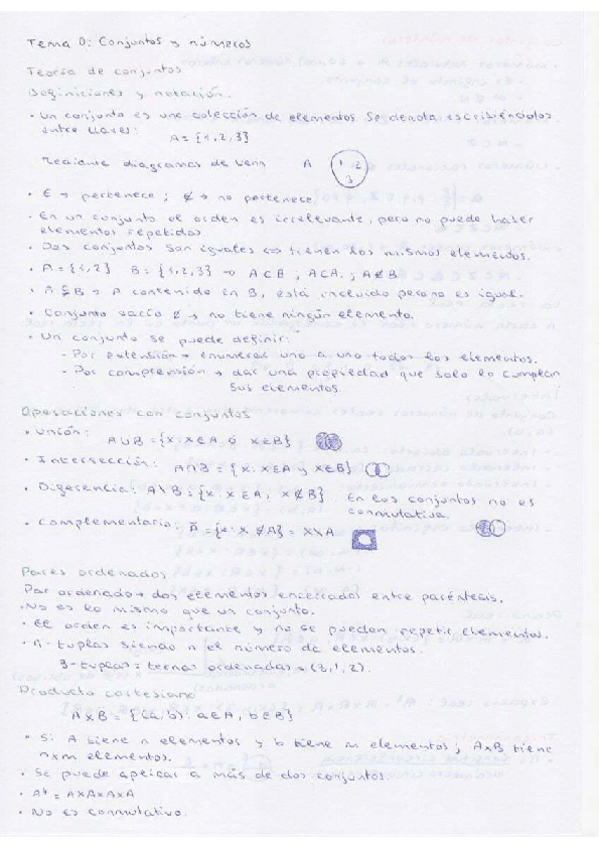 Tema 0: Conjuntos y números
Teoría de conjuntos
Definiciones y notación.
• Un conjunto es una colección de elementos. Se denota escribiéndolos
entre llaves: A = {1,2,3}
Mediante diagramas de Venn A 1 2 3
• ∈ → pertenece ; ∉ → no pertenece.
• En un conjunto el orden es irrelevante, pero no puede haber
elementos repetidos.
• Dos conjuntos son iguales ⇔ tienen los mismos elementos.
• A = {1,2} B = {1,2,3} → A⊂B ; A⊂A ;
• A⊊B → A contenido en B, está incluido pero no es igual.
• Conjunto vacío ∅ → no tiene ningún elemento.
• Un conjunto se puede definir:
- Por extensión → enumerar uno a uno todos los elementos.
- Por comprensión → dar una propiedad que solo lo cumplan
sus elementos.
Operaciones con conjuntos
• Unión: A∪B = {x: x∈A ó x∈B}
• Intersección: A∩B = {x: x∈A y x∈B}
• Diferencia: A\B = {x: x∈A, x∉B} En los conjuntos no es
conmutativa.
• Complementario: Ā = {x: x∉A} = X\A
Pares ordenados
Par ordenado → dos elementos encerrados entre paréntesis.
• No es lo mismo que un conjunto.
• El orden es importante y no se pueden repetir elementos.
• n-tuplas siendo n el número de elementos.
3-tuplas = ternas ordenadas = (3,1,2).
Producto cartesiano
A×B = {(a,b): a∈A, b∈B}
• Si A tiene n elementos y b tiene m elementos; A×B tiene
n×m elementos.
• Se puede aplicar a más de dos conjuntos.
• A⁴ = A×A×A×A
• No es conmutativo.